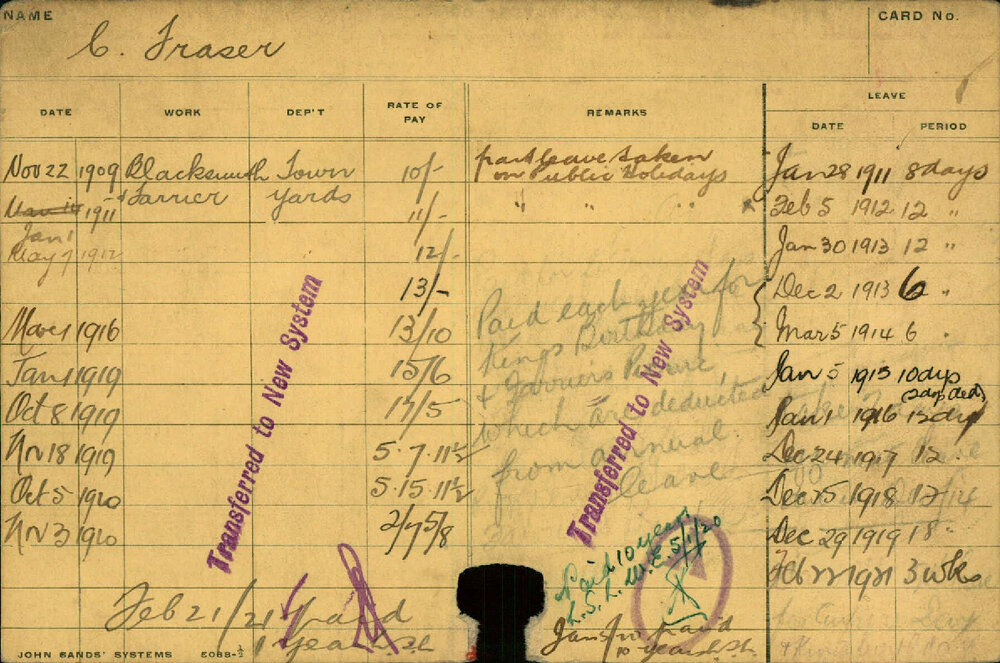 NAME
CARD No.
C. Fraser
LEAVE
DATE WORK DEP'T RATE OF PAY REMARKS DATE PERIOD
Nov 22 1909 Blacksmith Town 10/- part leave taken Jan 28 1911 8 days
& Farrier Yards on Public Holidays
1911 11/- " " " Feb 5 1912 12 "
Jan 1
May 7 1912 12/- Jan 30 1913 12 "
13/- Dec 2 1913 6 "
Mar 1 1916 13/10 Paid each year for Mar 5 1914 6 "
Kings Birthday
Jan 1 1919 15/6 & Farriers Picnic, Jan 5 1915 10 dys
(2 dys ded)
Oct 8 1919 17/5 which are deducted Jan 1 1916 12 dys
Nov 18 1919 5.7.11½ from annual Dec 24 1917 12
Oct 5 1920 5.15.11½ leave Dec 25 1918 12
Nov 3 1920 Dec 29 1919 18
Transferred to New System
Transferred to New System
Feb 1921 3 wks
Paid 10 years
L.S.L. W.E. 5/1/20
Feb 21/21 paid
1 year
Jan paid
10 years
JOHN SANDS' SYSTEMS 6088-½